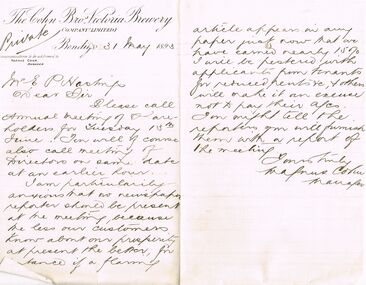 The Cohn Bros. Victoria Brewery
COMPANY LIMITED
Private
Bendigo 31 May 1893
MAGNUS COHN,
MANAGER
Mr E P Hastings
Dear Sir
Please call
Annual meeting of Share
holders for Tuesday 13th
June. You will of course
also call meeting
Directors on same date
at an earlier hour.
I am particularly
anxious that no newspaper
reporter should be present
at the meeting, because
the less our customers
know about our prosperity
at present the better, for
stance if a flaming
article appears in any
paper just now that we
have earned nearly 15%
I will be pestered with
applicants from tenants
for reduced rents & others
will make it an excuse
not to pay their a/cs.
You might tell the
reporters you will furnish
them with a report of
the meeting
Yours truly
Magnus Cohn
Manager